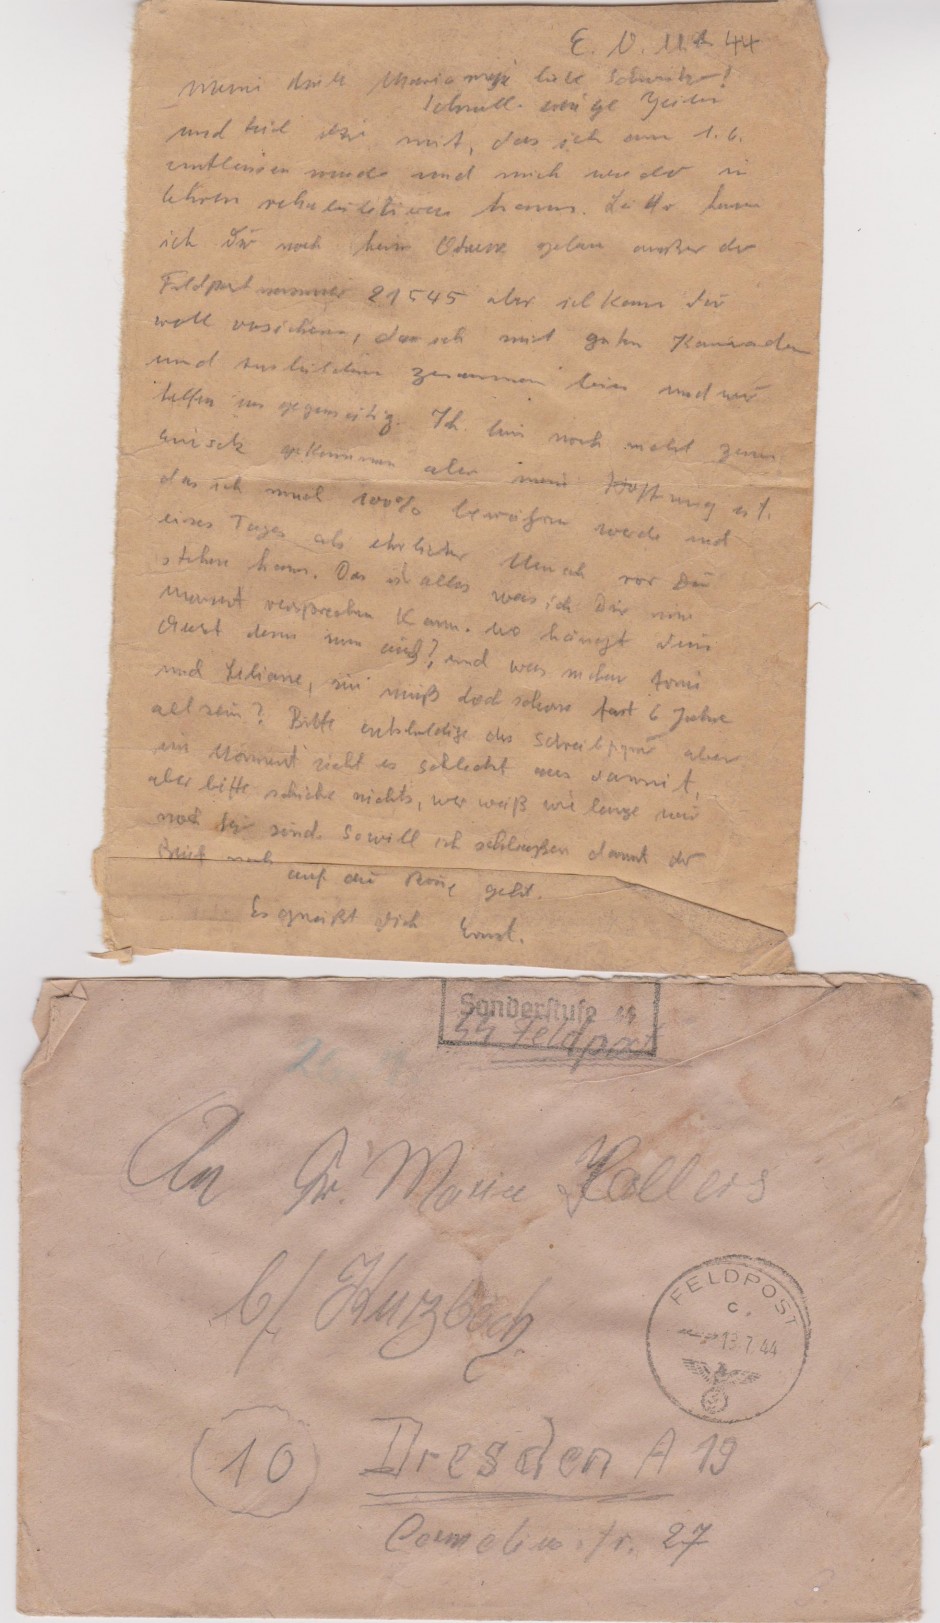 E. V. 11. 44
Meine Maria meine liebe
Schnell einige Zeilen
und teil mit, das ich am 1.6.
entlassen wurde und mich wieder in
Ehren rehabilitieren kann. Leider kann
ich Dir noch keine geben außer der
Feldpostnummer 21545 aber ich kann Dir
woll versichern, das ich mit guten Kameraden
und zusammen bin und wir
helfen uns gegenseitig. Ich bin noch nicht zum
einsatz gekommen aber mein Hoffnung ist,
das ich mich 100% bewähren werde und
eines Tages als ehrlicher Mensch vor Dir
stehen kann. Das ist alles was ich Dir im
Moment versprechen kann. wo hängt dein
denn nun und was machen Toni
und Liliane, sie muß doch schon fast 6 Jahre
alt sein? Bitte entschuldige das Schreibpapier aber
im Moment sieht es schlecht aus damit,
aber bitte schicke nichts, wer weiß wie lange wir
noch hier sind. So will ich schließen damit der
Brief noch auf die geht.
Es grüßt dich Ernst.
Sonderstufe SS
SS Feldpost
An Fr. Marie Hollers
b/ Kurzbach
FELDPOST
c.
13.7.44
10 Dresden A 19
27